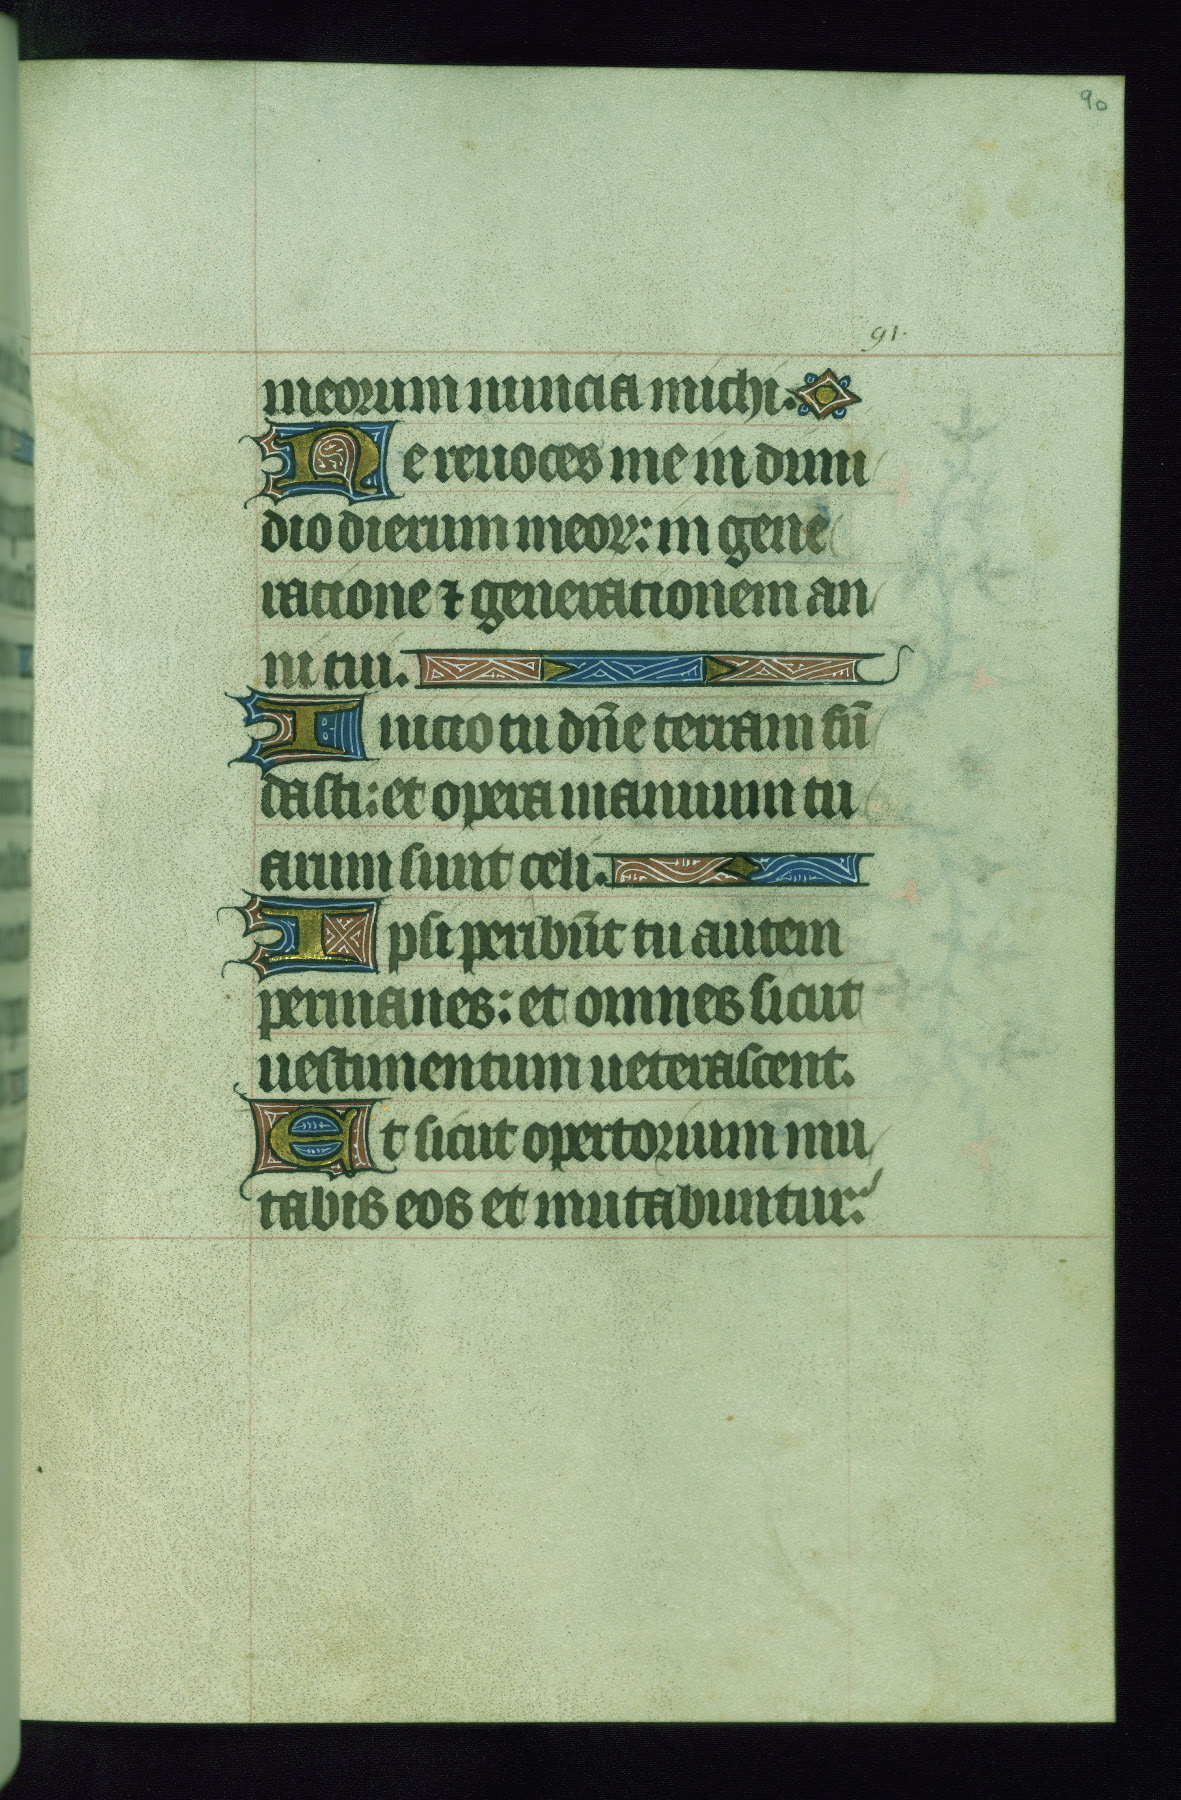 90
91.
meorum nuncia michi.
Ne reuoces me in dimi
dio dierum meoꝝ: in gene
ratione ⁊ generationem an
ni tui.
Inicio tu dn̄e terram fū
dasti: et opera manuum tu
arum sunt celi.
Ipsi peribūt tu autem
permanes: et omnes sicut
uestimentum ueterascent.
Et sicut opertorium mu
tabis eos et mutabuntur: